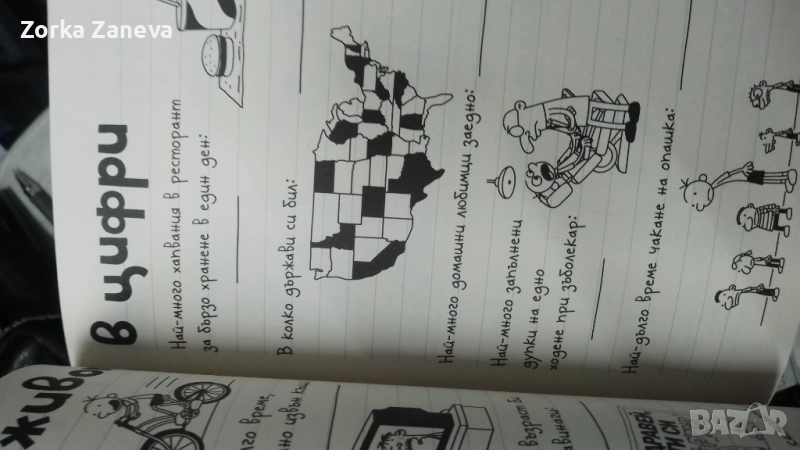 Zorka Zaneva
живо
в цифри
Най-много хапвания в ресторант
за бързо хранене в един ден:
В колко държави си бил:
Най-много домашни любимци заедно:
Най-много запълнени
дупки на едно
ходене при зъболекар:
Най-дълго време чакане на опашка:
лго време,
възраст си
BAZAR